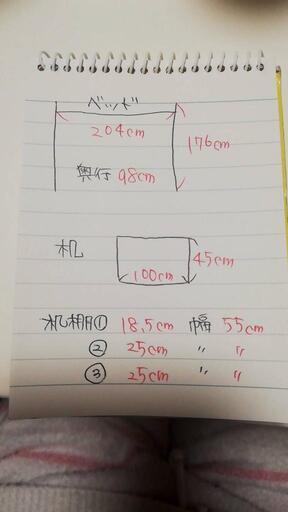 ベッド
204cm
176cm
奥行 98cm
机
45cm
100cm
机棚① 18.5cm 幅 55cm
② 25cm 〃 〃
③ 25cm 〃 〃